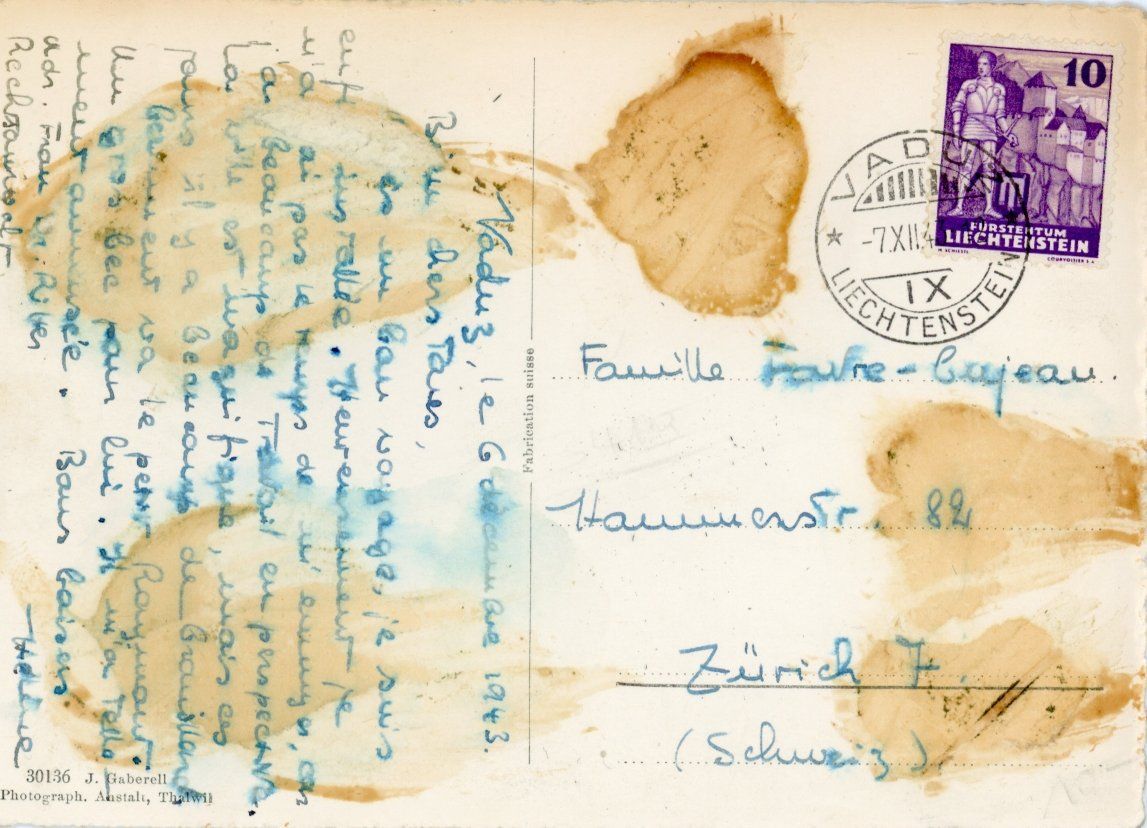 Vaduz, le 6 décembre 1943.
chers Tous,
un bon voyage, je suis
enfin installée. Heureusement je
n'a ai pas le temps de m'ennuyer, car
j'ai beaucoup de travail en perspective.
La ville est magnifique, mais ces
jours il y a beaucoup de brouillard
Comment va le petit Raymond.
Un gros bec pour lui. Il m'a telle-
ment amusée. Bons baisers.
Hélène
adr. Frau Dr. Ritter
Rechtsanwalt
30136 J. Gaberell
Photograph. Anstalt, Thalwil
Fabrication suisse
10
FÜRSTENTUM
LIECHTENSTEIN
COURVOISIER S.A.
VADUZ
-7.XII.4
IX
LIECHTENSTEIN
Famille Favre-Cujean.
Hammerstr. 82
Zürich 7.
(Schweiz)